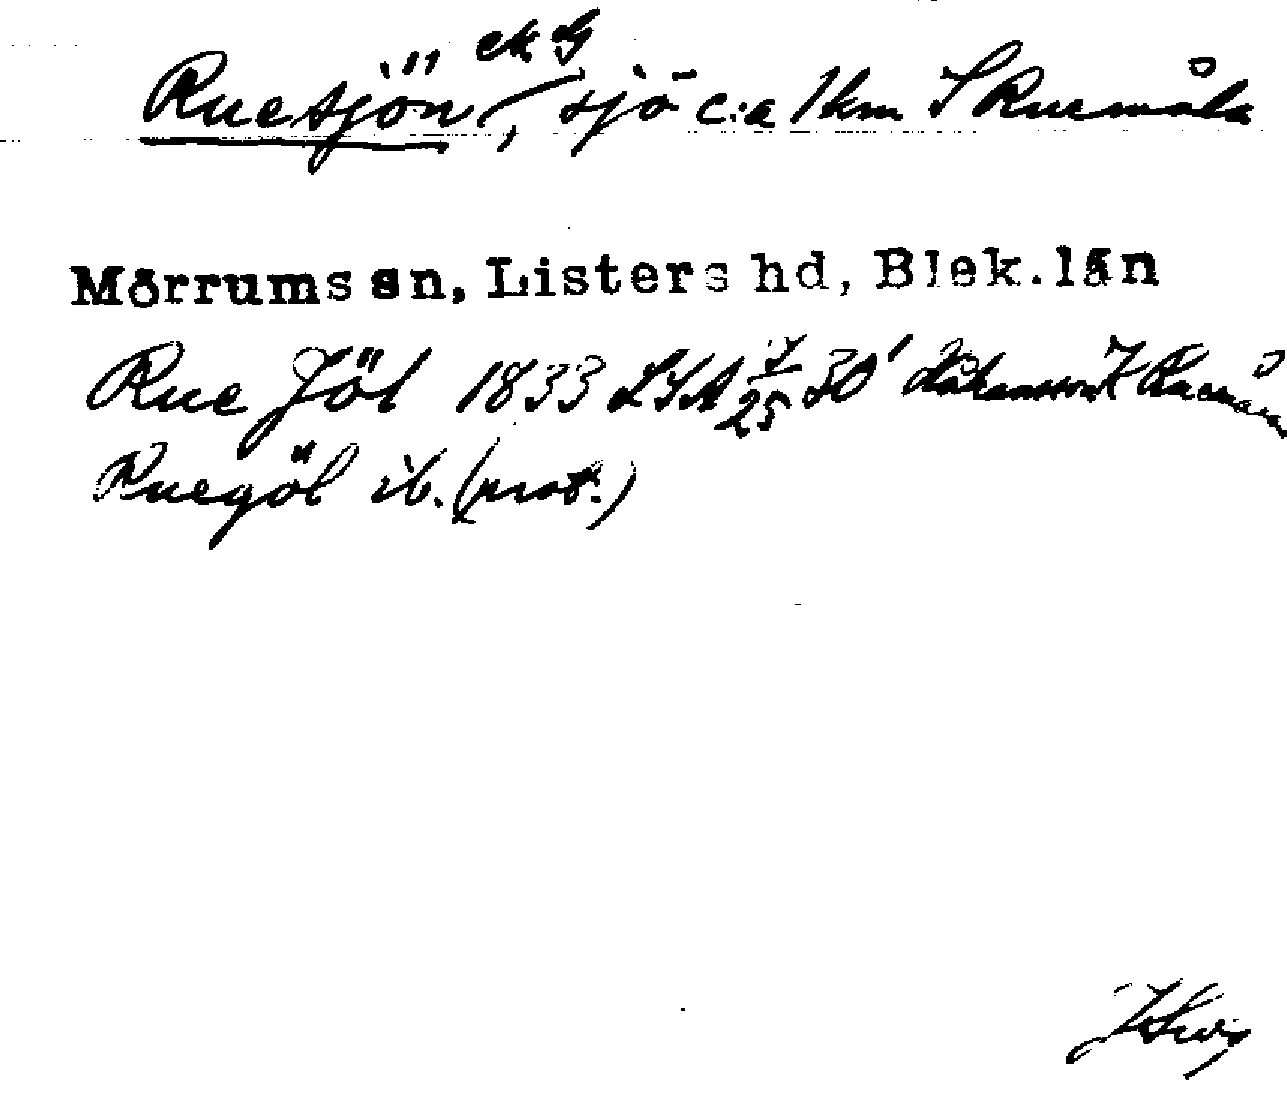 Ruesjön, ek G sjö c:a 1 km S Ruemåla
Mörrums sn, Listers hd, Blek. län
Rue Jöl 1833 LSA 30'
Ruegöl ib. (prot.)